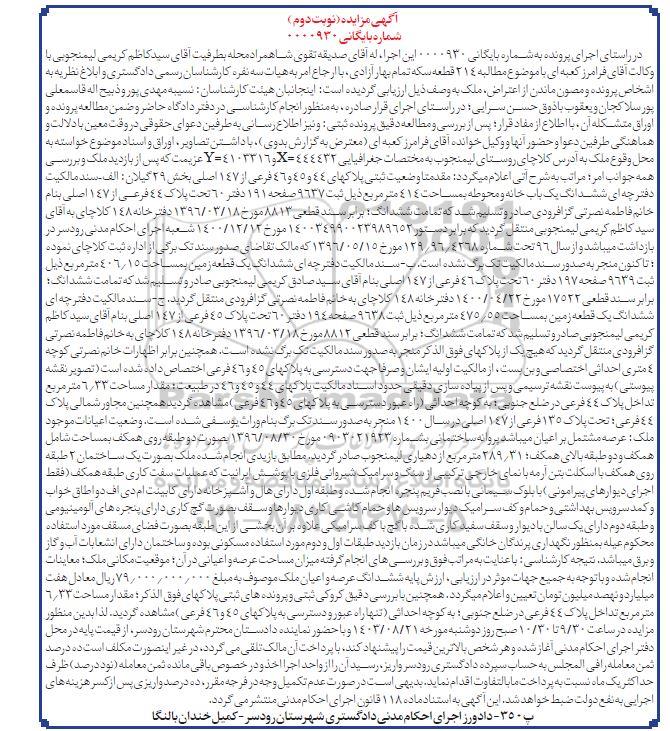 آگهی مزایده (نوبت دوم)
شماره بایگانی ۰۰۰۰۹۳۰
در راستای اجرای پرونده به شماره بایگانی ۰۰۰۰۹۳۰ این اجرا، له آقای صدیقه تقوی شاهمرادمحله بطرفیت آقای سید کاظم کریمی لیمنجوبی با
وکالت آقای فرامرز کعبه ای با موضوع مطالبه ۲۱۴ قطعه سکه تمام بهار آزادی، با ارجاع امر به هیات سه نفره کارشناسان رسمی دادگستری و ابلاغ نظریه به
اشخاص پرونده و مصون ماندن از اعتراض، ملک به وصف ذیل ارزیابی گردیده است: اینجانبان هیئت کارشناسان: نسیبه مهدی پور و ذبیح اله قاسمعلی
پور سلاکجان و یعقوب باذوق حسن سرایی؛ در راستای اجرای قرار صادره، به منظور انجام کارشناسی در دفتر دادگاه حاضر و ضمن مطالعه پرونده و
اوراق متشکله آن، با اطلاع از مفاد قرار؛ پس از بررسی و مطالعه دقیق پرونده ثبتی: و نیز اطلاع رسانی به طرفین دعوای حقوقی در وقت معین با دلالت و
هماهنگی طرفین دعوا و حضور آنها و وکیل خوانده آقای فرامرز کعبه ای (معترض به گزارش بدوی)، با داشتن تصاویر، اوراق و اسناد موضوع خواسته به
محل وقوع ملک به آدرس کلاچای روستای لیمنجوب به مختصات جغرافیایی X=۴۴۴۴۳۲ و Y=۴۱۰۳۳۱۶ عزیمت که پس از بازدید ملک و بررسی
همه جوانب امر؛ مراتب به شرح آتی اعلام میگردد: مقدمتا وضعیت ثبتی پلاکهای ۴۴ و ۴۵ و ۴۶ فرعی از ۱۴۷ اصلی بخش ۲۹ گیلان: الف-سند مالکیت
دفترچه ای ششدانگ یک باب خانه و محوطه بمساحت ۴۱۴ متر مربع ذیل ثبت ۹۶۳۷ صفحه ۱۹۱ دفتر ۶۰ تحت پلاک ۴۴ فرعی از ۱۴۷ اصلی بنام
خانم فاطمه نصرتی گزافرودی صادر و تسلیم شد که تمامت ششدانگ؛ برابر سند قطعی ۸۸۱۳ مورخ ۱۳۹۶/۰۳/۱۸ دفترخانه ۱۴۸ کلاچای به آقای
سید کاظم کریمی لیمنجوبی منتقل گردید که برابر دستور ۱۴۰۰۳۴۹۹۰۰۰۲۳۹۸۹۶۵۳ مورخ ۱۴۰۰/۱۲/۱۲ شعبه اجرای احکام مدنی رودسر در
بازداشت میباشد و از سال ۹۶ تحت شماره ۱۲۹٫۹۶٫۴۲۶۸ مورخ ۱۳۹۶/۰۵/۱۵ که مالک تقاضای صدور سند تک برگی از اداره ثبت کلاچای نموده
؛ تاکنون منجر به صدور سند مالکیت تک برگ نشده است. ب-سند مالکیت دفترچه ای ششدانگ یک قطعه زمین بمساحت ۴۰۶٫۱۵ متر مربع ذیل
ثبت ۹۶۳۹ صفحه ۱۹۷ دفتر ۶۰ تحت پلاک ۴۶ فرعی از ۱۴۷ اصلی بنام آقای سید صادق کریمی لیمنجوبی صادر و تسلیم شد که تمامت ششدانگ؛
برابر سند قطعی ۱۷۵۲۲ مورخ ۱۴۰۰/۰۴/۲۲ دفترخانه ۱۴۸ کلاچای به خانم فاطمه نصرتی گزافرودی منتقل گردید. ج-سند مالکیت دفترچه ای
ششدانگ یک قطعه زمین بمساحت ۴۷۵٫۵۵ متر مربع ذیل ثبت ۹۶۳۸ صفحه ۱۹۴ دفتر ۶۰ تحت پلاک ۴۵ فرعی از ۱۴۷ اصلی بنام آقای سید کاظم
کریمی لیمنجوبی صادر و تسلیم شد که تمامت ششدانگ؛ برابر سند قطعی ۸۸۱۲ مورخ ۱۳۹۶/۰۳/۱۸ دفترخانه ۱۴۸ کلاچای به خانم فاطمه نصرتی
گزافرودی منتقل گردید که هیچ یک از پلاکهای فوق الذکر منجر به صدور سند مالکیت تک برگ نشده است. همچنین برابر اظهارات خانم نصرتی کوچه
۴ متری احداثی اختصاصی و بن بست، از مالکیت اولیه ایشان و صرفا جهت دسترسی به پلاکهای ۴۵ و ۴۶ فرعی اختصاص داده شده است (تصویر نقشه
پیوستی) به پیوست نقشه ترسیمی و پس از پیاده سازی دقیقی حدود اسناد مالکیت پلاکهای ۴۴ و ۴۵ و ۴۶ در طبیعت؛ مقدار مساحت ۶٫۳۳ متر مربع
تداخل پلاک ۴۴ فرعی در ضلع جنوبی؛ به کوچه احداثی (راه عبور دسترسی به پلاکهای ۴۵ و ۴۶ فرعی) مشاهده گردید همچنین مجاور شمالی پلاک
۴۴ فرعی؛ تحت پلاک ۱۳۵ فرعی از ۱۴۷ اصلی در سال ۱۴۰۰ منجر به صدور سند تک برگ بنام وراث یوسفی شده است. وضعیت اعیانات موجود
ملک: عرصه مشتمل بر اعیان میباشد پروانه ساختمانی بشماره ۰۹۰۳۰۲۱۹۴۳ مورخ ۱۳۹۶/۰۸/۳۰ بصورت دو طبقه روی همکف بمساحت شامل
همکف و دو طبقه بالای همکف؛ ۲۸۹٫۳۱ متر مربع از دهیاری لیمنجوب صادر گردید. مطابق بازدید انجام شده ملک بصورت یک ساختمان ۲ طبقه
روی همکف با اسکلت بتن آرمه با نمای خارجی ترکیبی از سنگ و سرامیک شیروانی فلزی با پوشش ایرانیت که عملیات سفت کاری طبقه همکف (فقط
اجرای دیوارهای پیرامونی) با بلوک سیمانی با نصب فریم پنجره انجام شده و طبقه اول دارای هال و آشپزخانه دارای کابینت ام دی اف دو اطاق خواب
و کمد سرویس بهداشتی و حمام و کف سرامیک دیوار سرویس ها و حمام کاشی کاری دیوارها و سقف بصورت گچ کاری دارای پنجره های آلومینیومی
و طبقه دوم دارای یک سالن با دیوار و سقف سفید کاری شده با گچ با کف سرامیکی علاوه بر آن بخشی از این طبقه بصورت فضای مسقف مورد استفاده
محکوم علیه بمنظور نگهداری پرندگان خانگی میباشد در زمان بازدید طبقات اول و دوم مورد استفاده مسکونی بوده و ساختمان دارای انشعابات آب و گاز
و برق میباشد. نتیجه کارشناسی: با عنایت به مراتب فوق و بررسی های انجام گرفته میزان مساحت عرصه و اعیانی در آن؛ موقعیت مکانی ملک؛ معاینات
انجام شده و با توجه به جمیع جهات موثر در ارزیابی، ارزش پایه ششدانگ عرصه و اعیان ملک موصوف به مبلغ ۷۹٫۰۰۰٫۰۰۰٫۰۰۰ ریال معادل هفت
میلیارد و نهصد میلیون تومان تعیین و اعلام میگردد. همچنین با بررسی دقیق کروکی ثبتی و پرونده های ثبتی پلاکهای فوق الذکر؛ مقدار مساحت ۶٫۳۳
متر مربع تداخل پلاک ۴۴ فرعی در ضلع جنوبی؛ به کوچه احداثی (تنها راه عبور و دسترسی به پلاکهای ۴۵ و ۴۶ فرعی) مشاهده گردید. لذا بدین منظور
مزایده در ساعت ۹/۳۰ تا ۱۰/۳۰ صبح روز دوشنبه مورخه ۱۴۰۳/۰۸/۲۱ و با حضور نماینده دادستان محترم شهرستان رودسر، از قیمت پایه در محل
دفتر اجرای احکام مدنی آغاز شده و هر شخص بالاترین قیمت را پیشنهاد کند، با پرداخت آن مالک تلقی می گردد، در غیر اینصورت مکلف است ده درصد
ثمن معامله را فی المجلس به حساب سپرده دادگستری رودسر واریز، رسید آن را از واحد اجرا اخذ و در خصوص باقی مانده ثمن معامله (نود درصد) ظرف
حداکثر یک ماه نسبت به پرداخت مابالتفاوت اقدام نماید. بدیهی است در صورت عدم تکمیل وجه در فرجه مقرر، ده درصد واریزی پس از کسر هزینه های
اجرایی به نفع دولت ضبط خواهد شد. این آگهی به استناد ماده ۱۱۸ قانون اجرای احکام مدنی منتشر می گردد.
پ ۳۵۰- دادورز اجرای احکام مدنی دادگستری شهرستان رودسر - کمیل خندان بالنگا